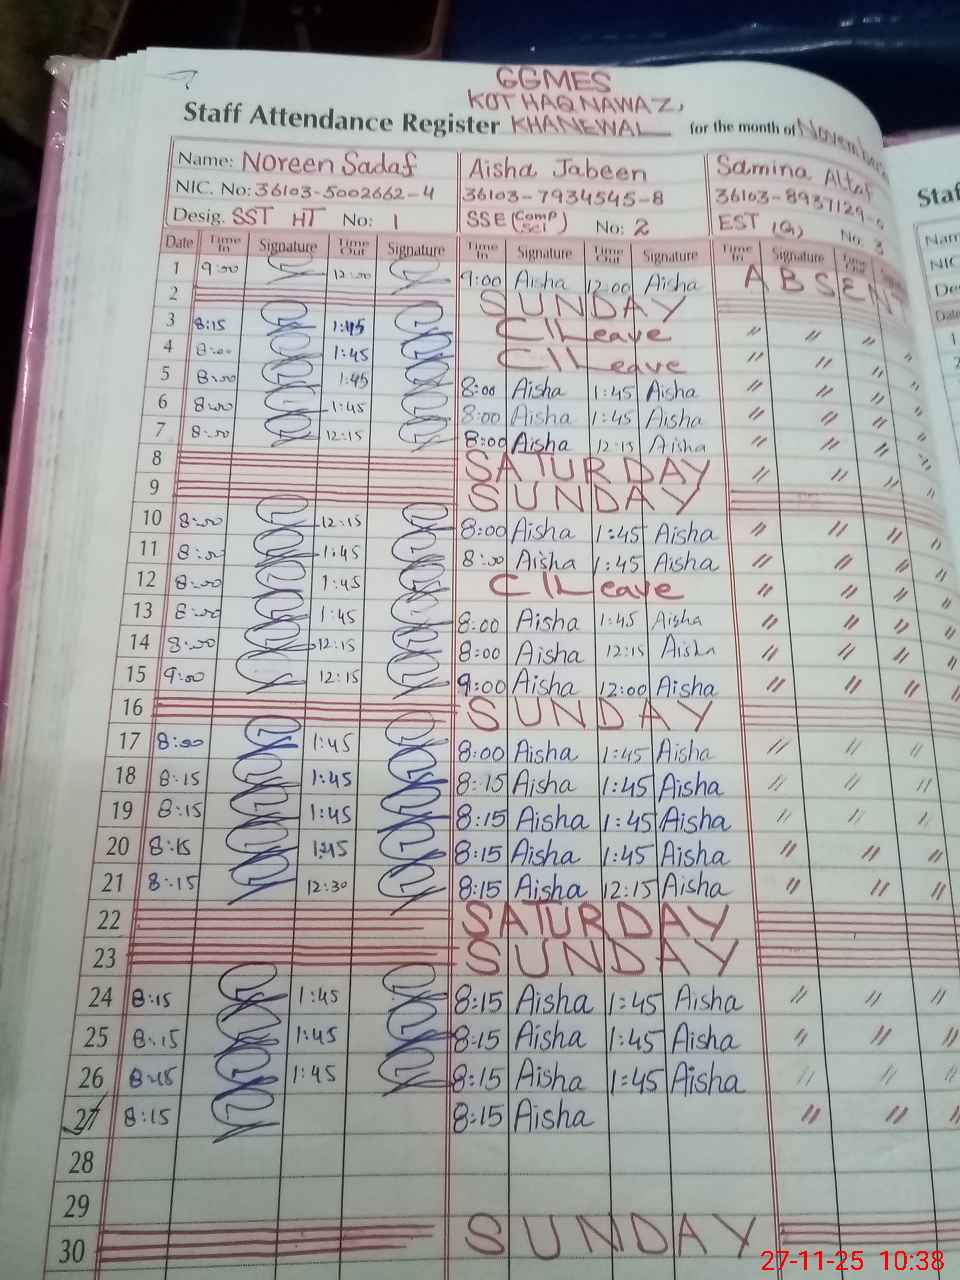 GGMES
KOT HAQ NAWAZ,
Staff Attendance Register KHANEWAL for the month of November
Name: Noreen Sadaf Aisha Jabeen Samina Altaf
NIC. No: 36103-5002662-4 36103-7934545-8 36103-8937129-
Desig. SST HT No: 1 SSE (Comp Sci) No: 2 EST (G) No: 3
Date Time In Signature Time Out Signature Time In Signature Time Out Signature Time In Signature Time Out
1 9:00 12:00 9:00 Aisha 12:00 Aisha ABSENT
2 SUNDAY
3 8:15 1:45 C/Leave " " " "
4 8:00 1:45 C/Leave " " " "
5 8:00 1:45 8:00 Aisha 1:45 Aisha " " " "
6 8:00 1:45 8:00 Aisha 1:45 Aisha " " " "
7 8:00 12:15 8:00 Aisha 12:15 Aisha " " " "
8 SATURDAY " " " "
9 SUNDAY
10 8:00 12:15 8:00 Aisha 1:45 Aisha " " " "
11 8:00 1:45 8:00 Aisha 1:45 Aisha " " " "
12 8:00 1:45 C/Leave " " " "
13 8:00 1:45 8:00 Aisha 1:45 Aisha " " " "
14 8:00 12:15 8:00 Aisha 12:15 Aisha " " " "
15 9:00 12:15 9:00 Aisha 12:00 Aisha " " " "
16 SUNDAY
17 8:00 1:45 8:00 Aisha 1:45 Aisha " " "
18 8:15 1:45 8:15 Aisha 1:45 Aisha " " "
19 8:15 1:45 8:15 Aisha 1:45 Aisha " " "
20 8:15 1:45 8:15 Aisha 1:45 Aisha " " "
21 8:15 12:30 8:15 Aisha 12:15 Aisha " " "
22 SATURDAY
23 SUNDAY
24 8:15 1:45 8:15 Aisha 1:45 Aisha " " "
25 8:15 1:45 8:15 Aisha 1:45 Aisha " " "
26 8:15 1:45 8:15 Aisha 1:45 Aisha " " "
27 8:15 8:15 Aisha " " "
28
29
30 SUNDAY
27-11-25 10:38